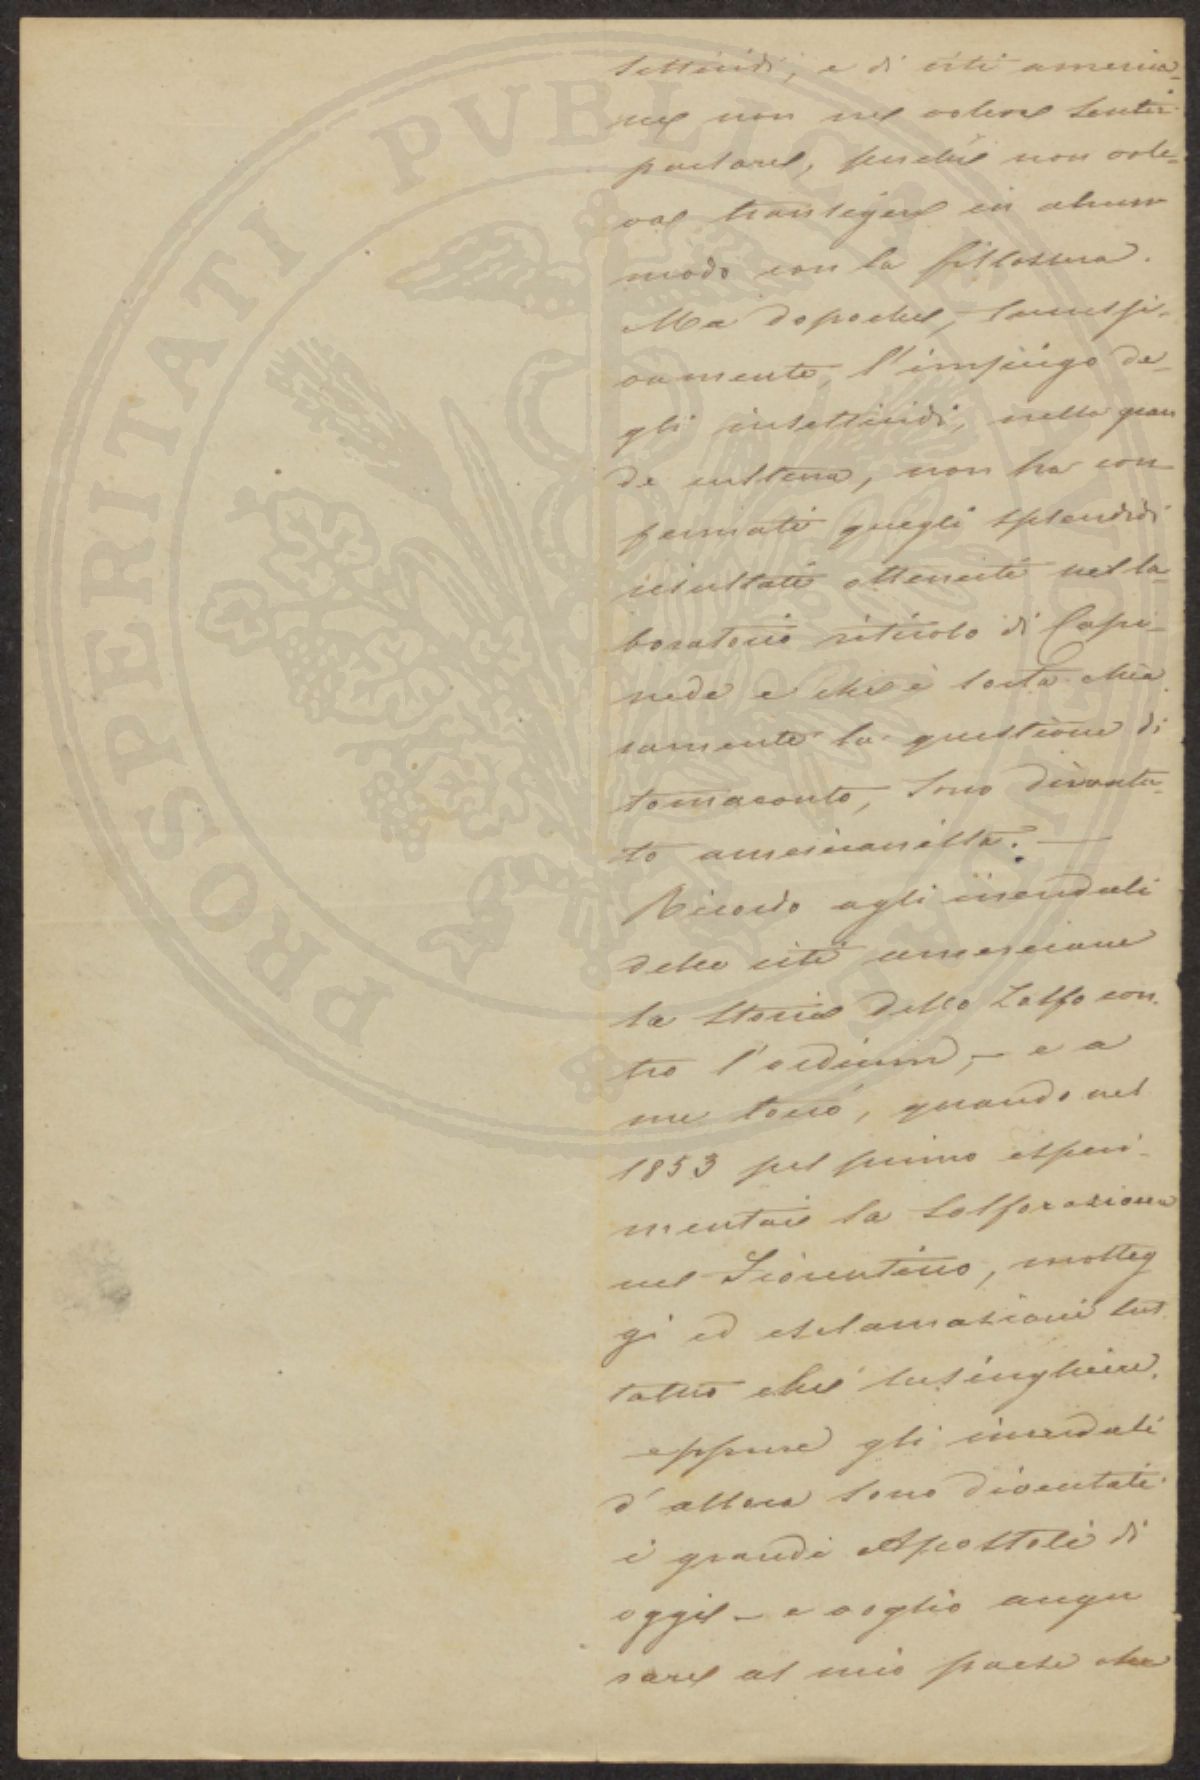 PROSPERITATI PVBLICAE AVGENDAE
setticidi, e di viti america-
ne non ne volevo sentir
parlare, perchè non vole-
va transigere in alcun
modo con la fillossera.
Ma dopochè, successi-
vamente, l'impiego de-
gli insetticidi, nella gran
de cultura, non ha con
fermati quegli splendidi
risultati ottenuti nel la-
boratorio viticolo di
e che è sorta chia
ramente la questione di
tornaconto, sono diventa-
to americanista. —
Ricordo agli increduli
delle viti americane
la storia dello zolfo con-
tro l'oidium, — e a
me toccò, quando nel
1853 pel primo esperi-
mentai la solforazione
nel Fiorentino, motteg
gi ed esclamazioni tut
t'altro che lusinghiere,
eppure gli increduli
d'allora sono diventati
i grandi Apostoli di
oggi — e voglio augu
rare al mio paese che